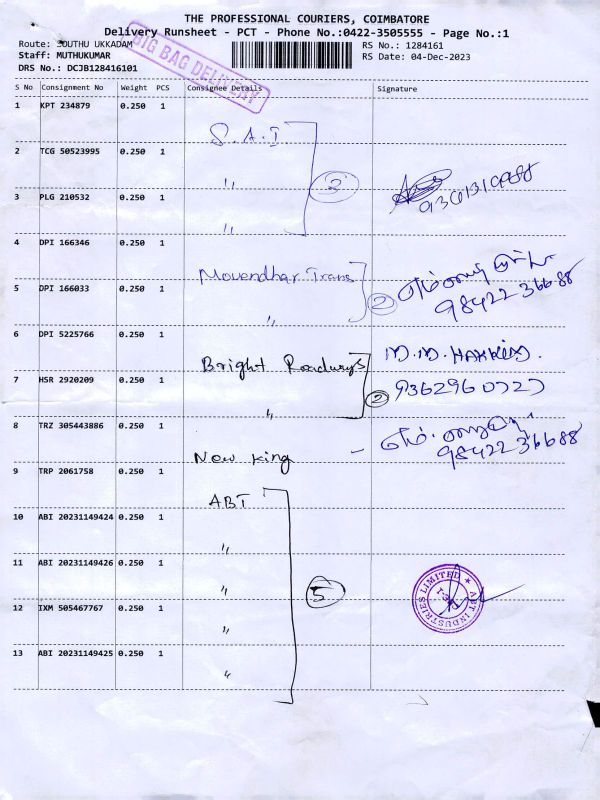 THE PROFESSIONAL COURIERS, COIMBATORE
Delivery Runsheet - PCT - Phone No.:0422-3505555 - Page No.:1
Route: SOUTHU UKKADAM
RS No.: 1284161
Staff: MUTHUKUMAR
RS Date: 04-Dec-2023
DRS No.: DCJB128416101
BIG BAG DELIVERY
S No Consignment No Weight PCS Consignee Details Signature
1 KPT 234879 0.250 1
S.A.I
2 TCG 50523995 0.250 1
" 3
3 PLG 210532 0.250 1
"
4 DPI 166346 0.250 1
Movendhar Trans
5 DPI 166033 0.250 1
" 2 98422 36688
6 DPI 5225766 0.250 1
Bright Roadways M.M. HAKKIM.
7 HSR 2920209 0.250 1
" 2 9362960727
8 TRZ 305443886 0.250 1
New king - 98422 36688
9 TRP 2061758 0.250 1
ABT
10 ABI 20231149424 0.250 1
"
11 ABI 20231149426 0.250 1
" 5
ABT INDUSTRIES LIMITED
12 IXM 505467767 0.250 1
"
13 ABI 20231149425 0.250 1
"